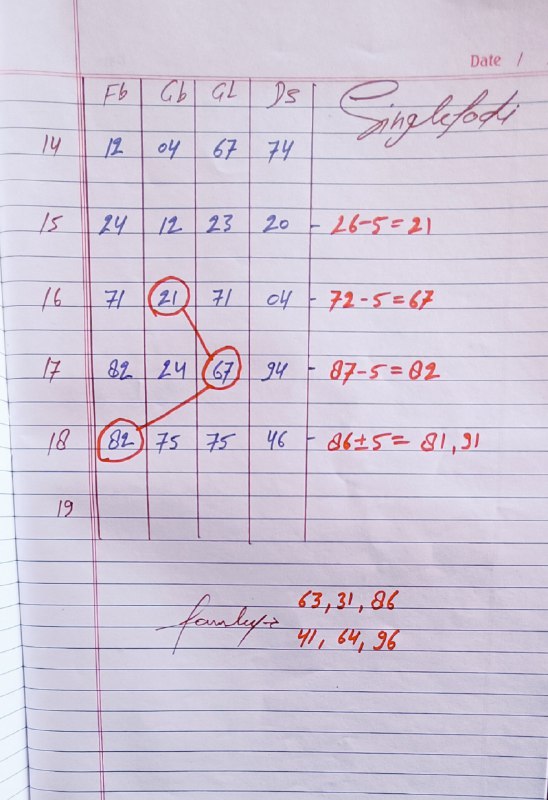 Date /
Fb Gb GL DS Single Jodi
14 12 04 67 74
15 24 12 23 20 - 26-5=21
16 71 21 71 04 - 72-5=67
17 82 24 67 94 - 87-5=82
18 82 75 75 46 - 86±5= 81,91
19
family→ 63,31,86
41,64,96